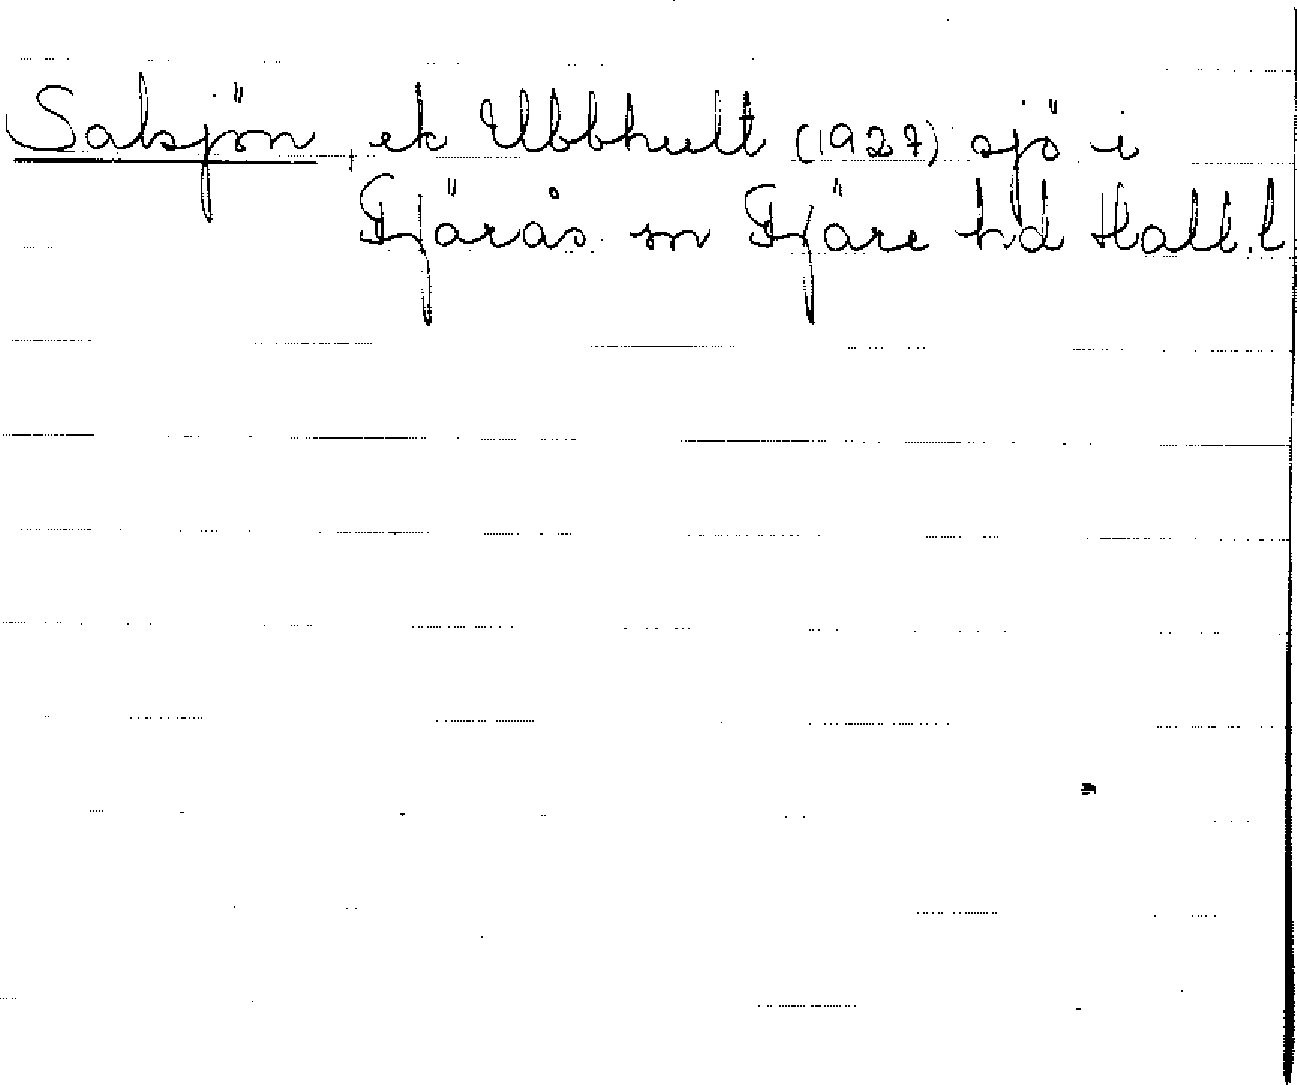 Salsjön, ek Ubbhult (1927) sjö i
Fjärås sn Fjäre hd Hall.l